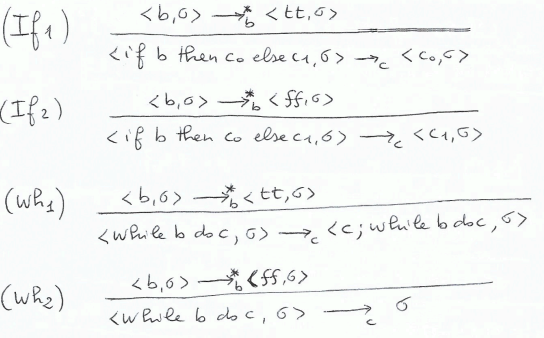 (If1) <b,σ> →*b <tt,σ>
<if b then c0 else c1,σ> →c <c0,σ>
(If2) <b,σ> →*b <ff,σ>
<if b then c0 else c1,σ> →c <c1,σ>
(Wh1) <b,σ> →*b <tt,σ>
<while b do c, σ> →c <c; while b do c, σ>
(Wh2) <b,σ> →*b <ff,σ>
<while b do c, σ> →c σ